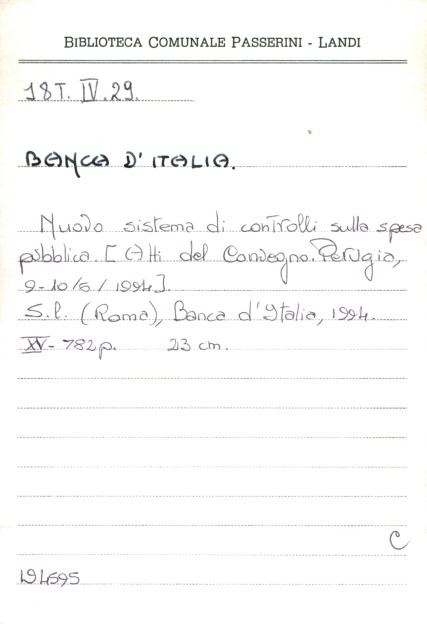 BIBLIOTECA COMUNALE PASSERINI - LANDI
18T. IV. 29.
BANCA D'ITALIA.
Nuovo sistema di controlli sulla spesa
pubblica. [Atti del Convegno. Perugia,
9-10/6/1994].
S.l. (Roma), Banca d'Italia, 1994.
XV - 782 p. 23 cm.
C
194595